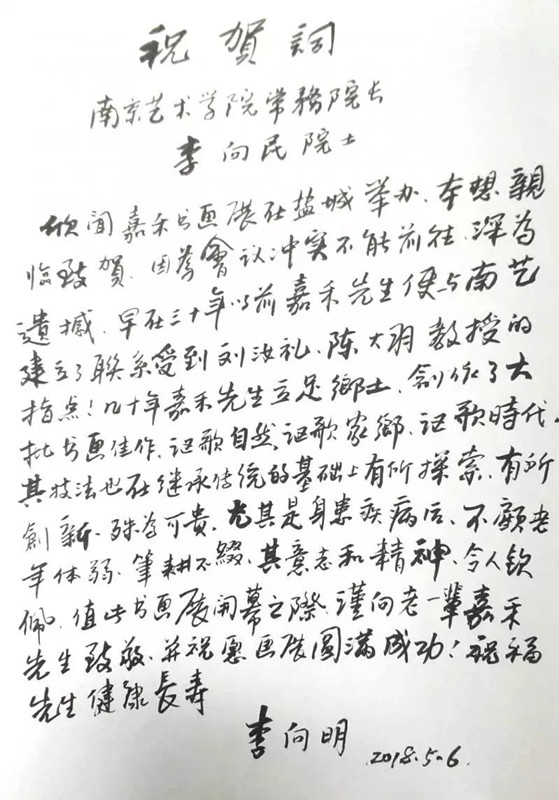 祝賀詞
南京艺术学院常務院长
李向民院士
欣闻嘉禾书画展在盐城举办、本想親
临致贺、因为會议冲突不能前往、深为
遗撼、早在三十年以前嘉禾先生便与南艺
建立了联系受到刘汝礼、陈大羽教授的
指点！几十年嘉禾先生立足鄉土、創作了大
批书画佳作、讴歌自然讴歌家鄉、讴歌時代、
其技法也在继承传统的基础上有所探索、有所
創新、殊为可贵、尤其是身患疾病后、不顧老
年体弱、筆耕不綴、其意志和精神、令人钦
佩、值此书画展開幕之際、谨向老一輩嘉禾
先生致敬、并祝愿画展圆满成功！祝福
先生健康長寿
李向明 2018.5.6.